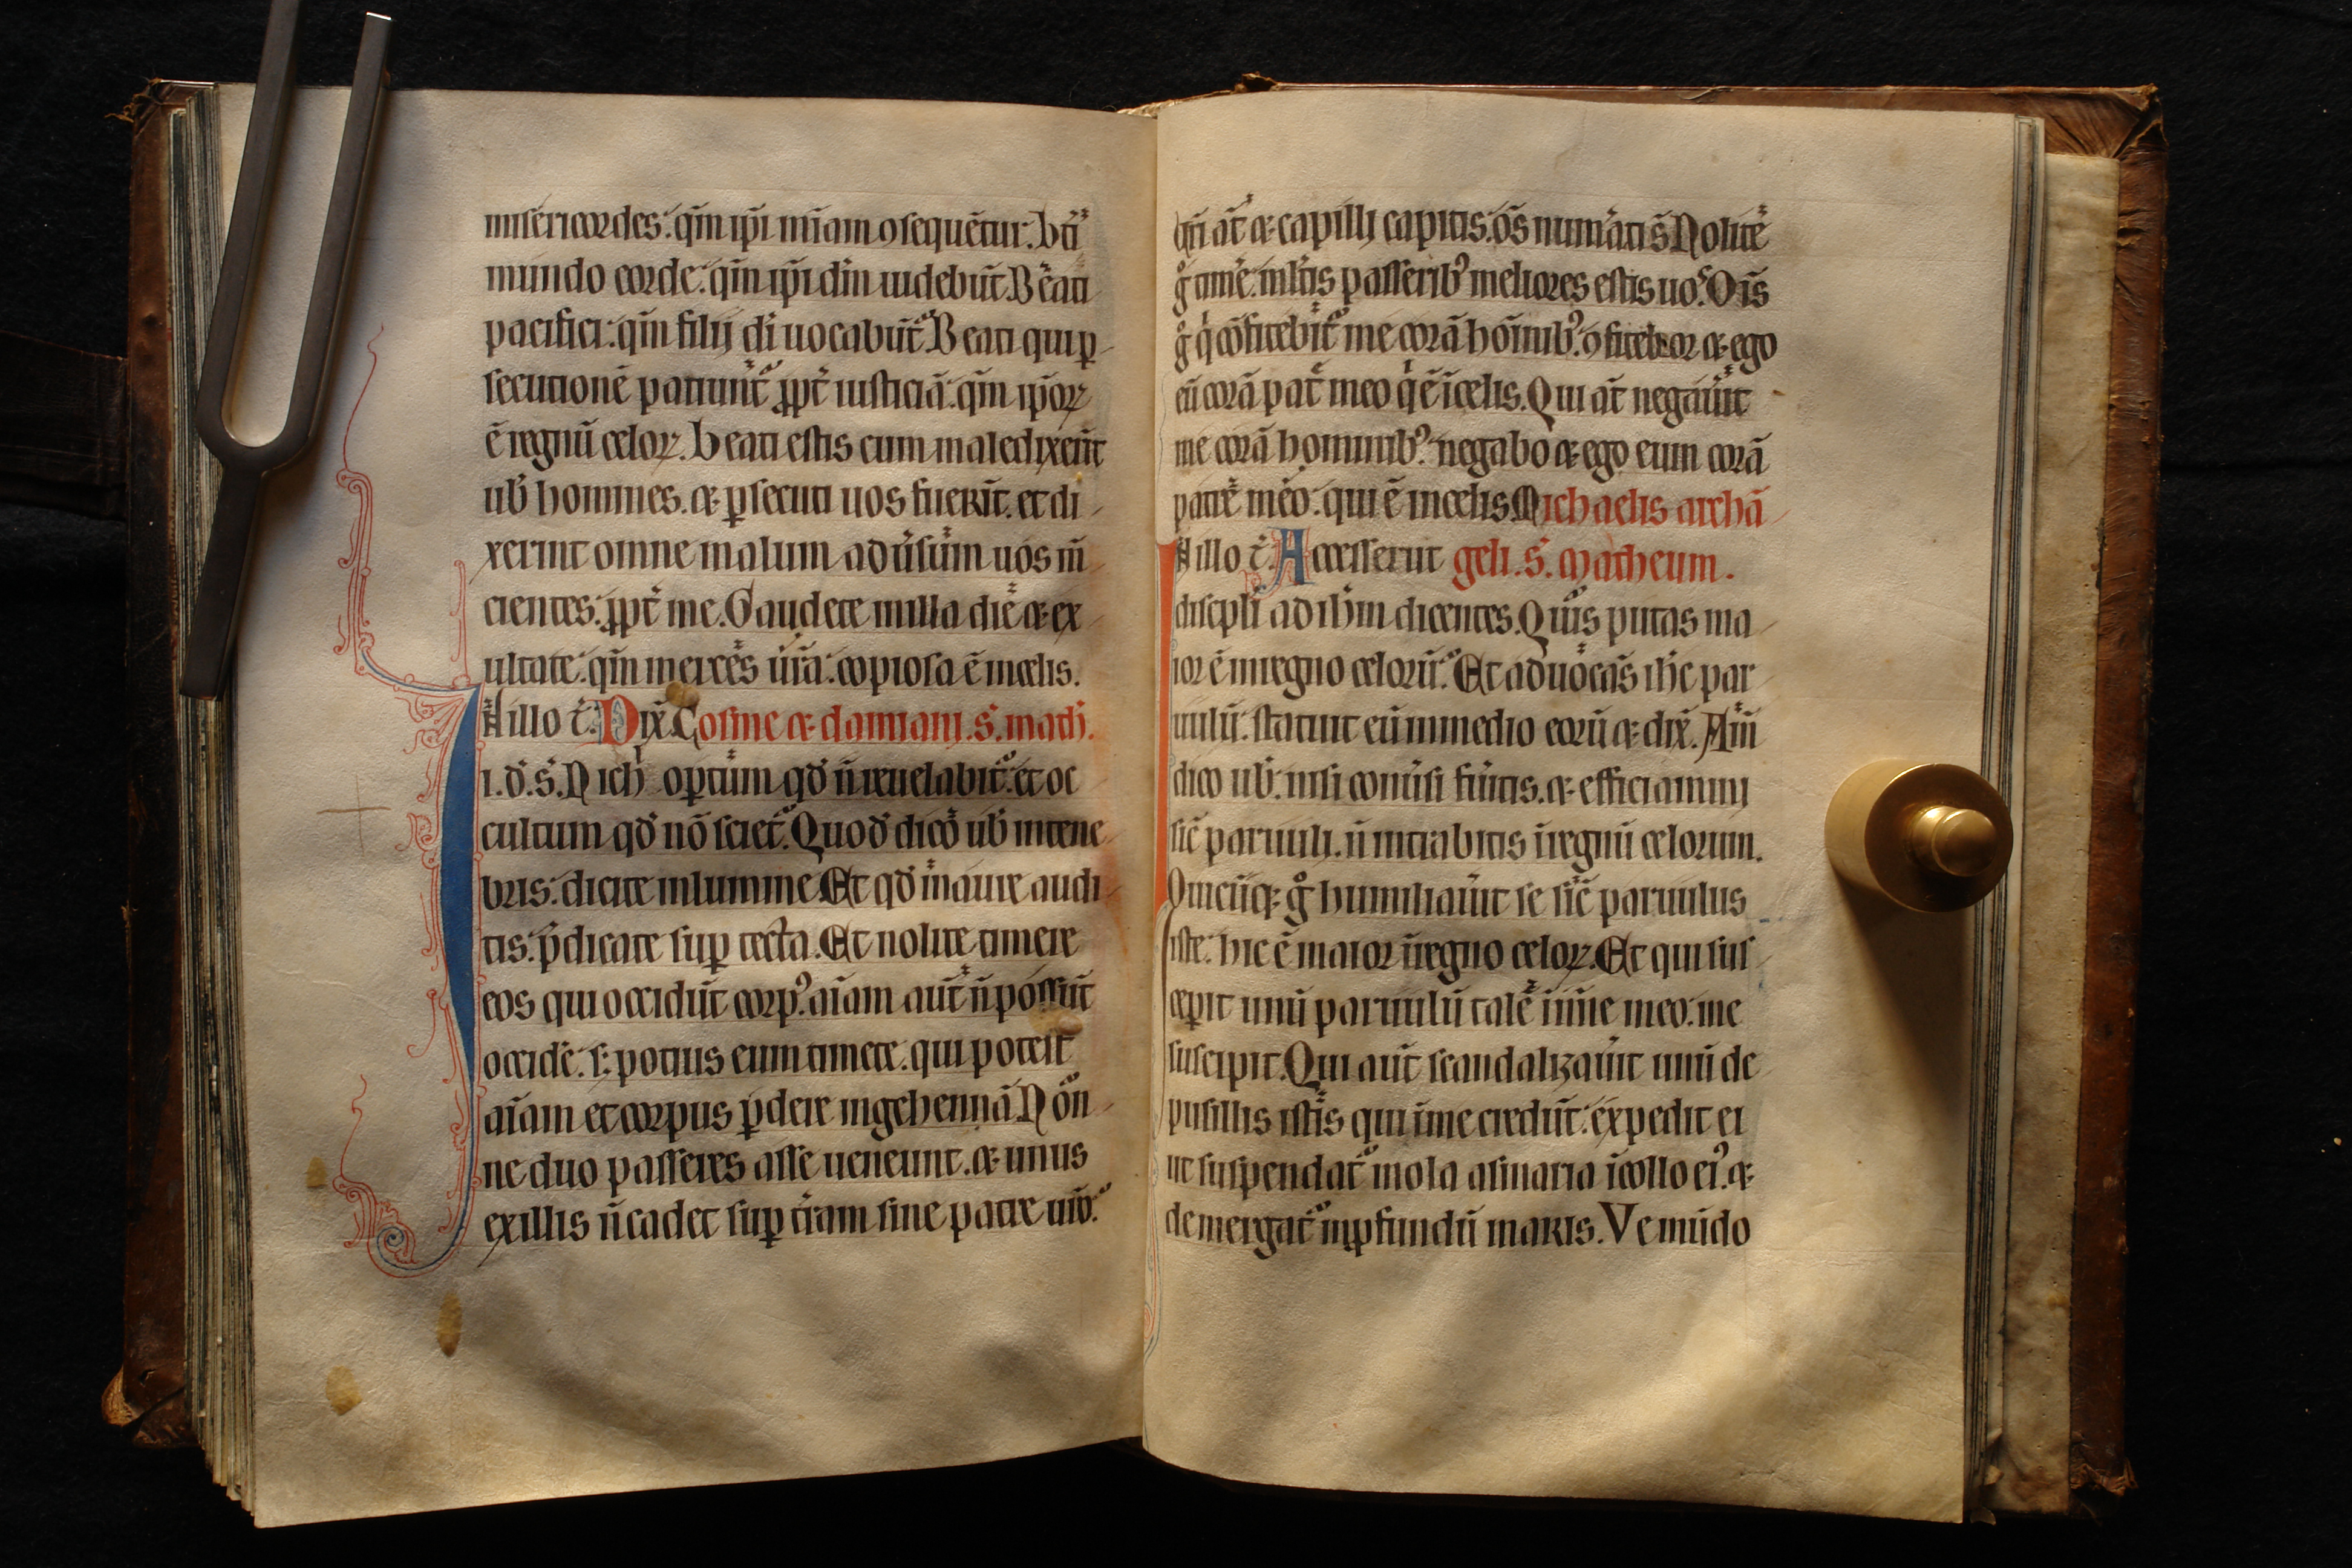 misericordes. qm̄ ip̄i mīam ꝯsequēt̄ur. bt̄i
mundo corde. qm̄ ip̄i dm̄ uidebūt. Beati
pacifici. qm̄ filij dī uocabūt᷑. Beati qui ꝑ
secutionē patiunt᷑ ꝓpt̄ iusticiā. qm̄ ip̄oꝝ
ē regnū celoꝝ. beati estis cum maledixerīt
uob̄ homines. ⁊ ꝑsecuti uos fuerīt. et di
xerint omne malum adūsum uos m̄
cientes. ꝓpt̄ me. Gaudete in illa die ⁊ ex
ultate. qm̄ merces ūra. copiosa ē in celis.
In illo t̄. Dix̄. Cosme ⁊ damiani. s. math̄.
i. d̄. s. Nich opt̄um qd̄ n̄ reuelabit᷑. et oc
cultum qd̄ nō sciet᷑. Quod dico uob̄ in tene
bris. dicite in lumine. Et qd̄ in aure audi
tis. p̄dicate suꝑ tecta. Et nolite timere
eos qui occidūt corpꝰ. aīam aut̄ n̄ possūt
occide. s; potius eum timete. qui potest
aīam et corpus ꝑdere in gehennā. Non
ne duo passeres asse ueneunt. ⁊ unus
ex illis n̄ cadet suꝑ t̄ram sine patre uro.
ur̄i at̄ ⁊ capilli capitis. oēs num̄ati s̄. Nolite
g̊ timē. mltis passeribꝰ meliores estis uos. Oīs
g̊ q̇ cōfitebit᷑ me corā hoīnibꝰ. ꝯfitebor ⁊ ego
eū corā pat̄ meo q̇ ē ī celis. Qui at̄ negaūit
me corā hominibꝰ. negabo ⁊ ego eum corā
patre meo. qui ē in celis. Michaelis archā
In illo t̄. Accesserunt geli. s. Matheum.
discipli ad ihm̄ dicentes. Quis putas ma
ior ē in regno celorū. Et aduocās ihc̄ par
uulū. statuit eū in medio eorū ⁊ dix̄. Am̄
dico uob̄. nisi conūsi fūitis. ⁊ efficiamini
sic̄ paruuli. n̄ intrabitis ī regnū celorum.
Quicūqꝫ g̊ humiliaūit se sic̄ paruulus
iste. hic ē maior ī regno celoꝝ. Et qui sus
ceꝑit unū paruulū talē ī noīe meo. me
suscipit. Qui aut̄ scandalizaūit unū de
pusillis istis qui ī me credūt. expedit ei
ut suspendat᷑ mola asinaria ī collo eiꝰ. ⁊
demergat᷑ in ꝓfundū maris. Ve mūdo